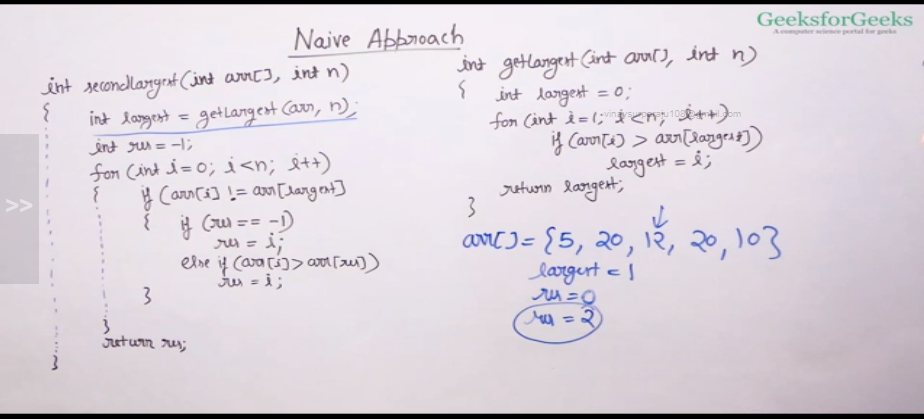 GeeksforGeeks
A computer science portal for geeks
Naive Approach
int secondLargest(int arr[], int n)
{
int largest = getLargest(arr, n);
int res = -1;
for (int i=0; i<n; i++)
{ if (arr[i] != arr[largest]
{ if (res == -1)
res = i;
else if (arr[i] > arr[res])
res = i;
}
}
return res;
}
int getLargest(int arr[], int n)
{ int largest = 0;
for (int i=1; i<n; i++)
if (arr[i] > arr[largest])
largest = i;
return largest;
}
arr[] = {5, 20, 12, 20, 10}
largest = 1
res = 0
res = 2
>>